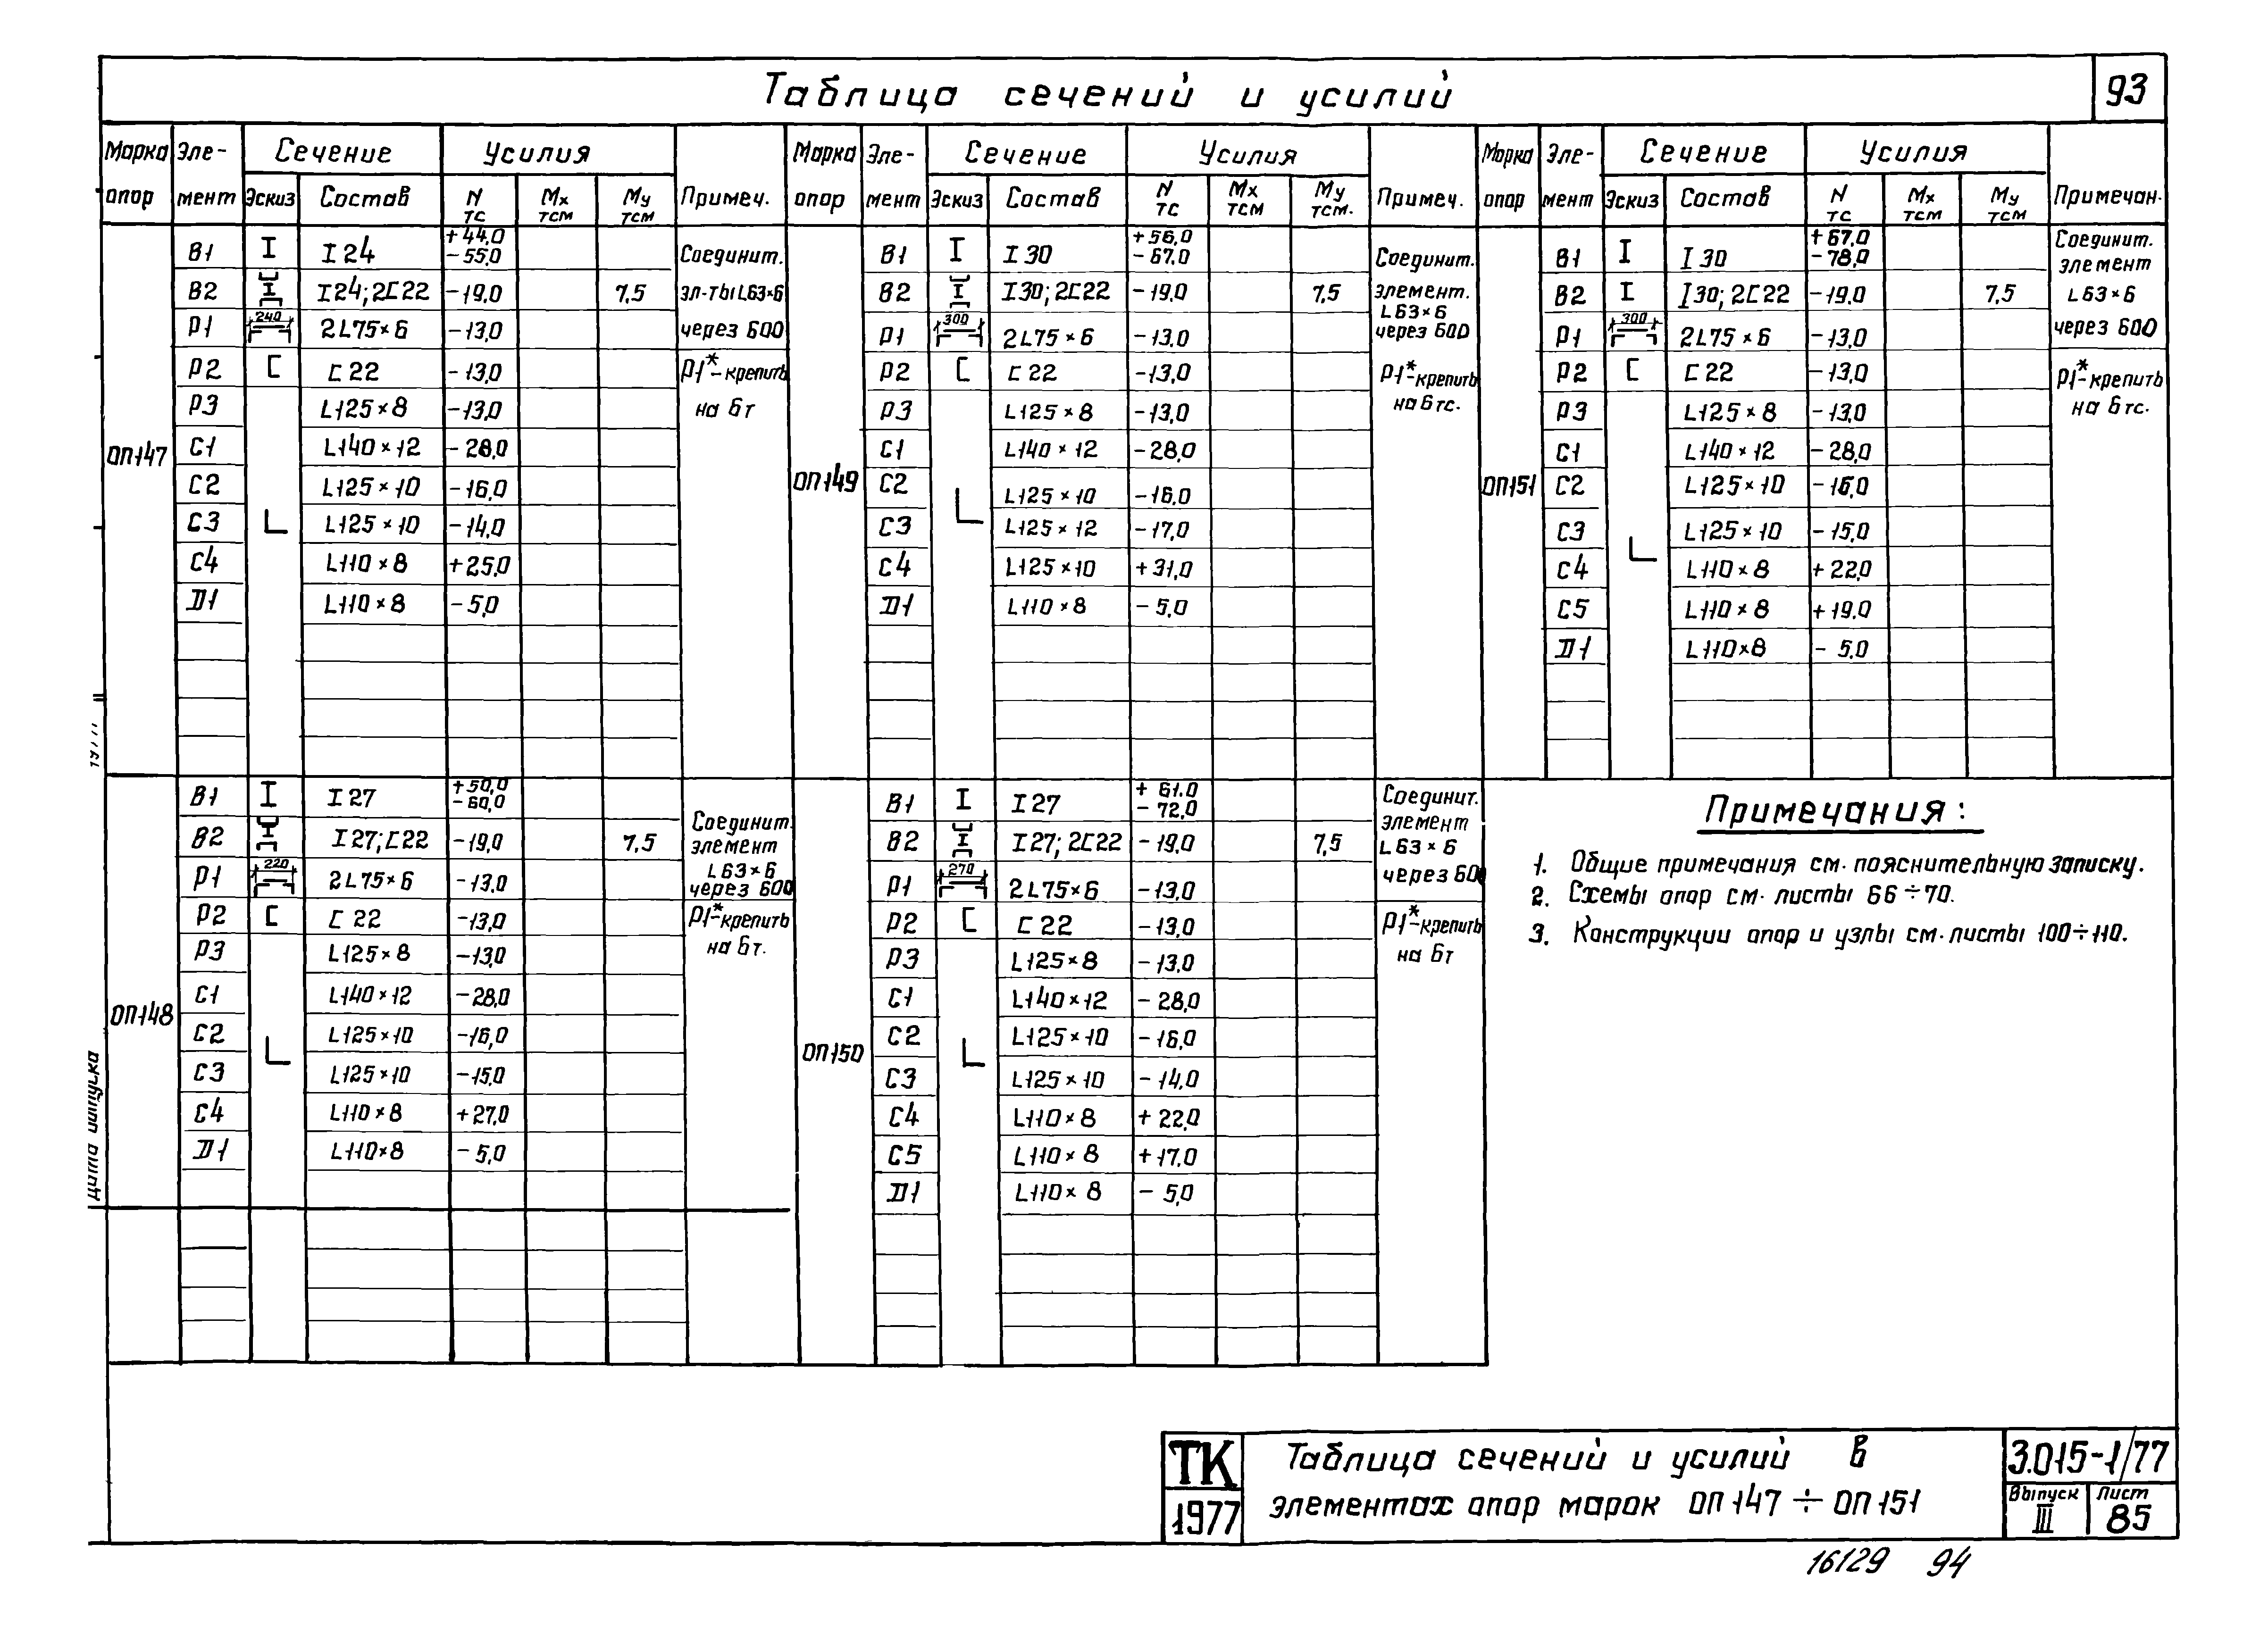 Таблица сечений и усилий
93
Марка опор Эле-мент Сечение Усилия Примеч. Марка опор Эле-мент Сечение Усилия Примеч. Марка опор Эле-мент Сечение Усилия Примечан.
Эскиз Состав N тс Mx тсм My тсм Эскиз Состав N тс Mx тсм My тсм. Эскиз Состав N тс Mx тсм My тсм
ОП147
В1 I I 24 +44,0 -55,0
В2 I I 24; 2[22 -19,0 7,5
Р1 240 2L75×6 -13,0
Р2 [ [ 22 -13,0
Р3 L125×8 -13,0
С1 L140×12 -28,0
С2 L125×10 -16,0
С3 L125×10 -14,0
С4 L110×8 +25,0
Д1 L110×8 -5,0
Соединит.
эл-ты L63×6
через 600
Р1*-крепить
на 6т
ОП148
В1 I I 27 +50,0 -60,0
В2 I I 27; [22 -19,0 7,5
Р1 220 2L75×6 -13,0
Р2 [ [ 22 -13,0
Р3 L125×8 -13,0
С1 L140×12 -28,0
С2 L125×10 -16,0
С3 L125×10 -15,0
С4 L110×8 +27,0
Д1 L110×8 -5,0
Соединит.
элемент
L63×6
через 600
Р1*-крепить
на 6т.
ОП149
В1 I I 30 +56,0 -67,0
В2 I I 30; 2[22 -19,0 7,5
Р1 300 2L75×6 -13,0
Р2 [ [ 22 -13,0
Р3 L125×8 -13,0
С1 L140×12 -28,0
С2 L125×10 -16,0
С3 L125×12 -17,0
С4 L125×10 +31,0
Д1 L110×8 -5,0
Соединит.
элемент.
L63×6
через 600
Р1*-крепить
на 6тс.
ОП150
В1 I I 27 +61.0 -72,0
В2 I I 27; 2[22 -19,0 7,5
Р1 270 2L75×6 -13,0
Р2 [ [ 22 -13,0
Р3 L125×8 -13,0
С1 L140×12 -28,0
С2 L125×10 -16,0
С3 L125×10 -14,0
С4 L110×8 +22,0
С5 L110×8 +17,0
Д1 L110×8 -5,0
Соединит.
элемент
L63×6
через 600
Р1*-крепить
на 6т
ОП151
В1 I I 30 +67,0 -78,0
В2 I I 30; 2[22 -19,0 7,5
Р1 300 2L75×6 -13,0
Р2 [ [ 22 -13,0
Р3 L125×8 -13,0
С1 L140×12 -28,0
С2 L125×10 -16,0
С3 L125×10 -15,0
С4 L110×8 +22,0
С5 L110×8 +19,0
Д1 L110×8 -5,0
Соединит.
элемент
L63×6
через 600
Р1*-крепить
на 6тс.
Примечания:
1. Общие примечания см. пояснительную записку.
2. Схемы опор см. листы 66÷70.
3. Конструкции опор и узлы см. листы 100÷110.
ТК
1977
Таблица сечений и усилий в
элементах опор марок ОП147÷ОП151
3.015-1/77
Выпуск III
Лист 85
16129 94